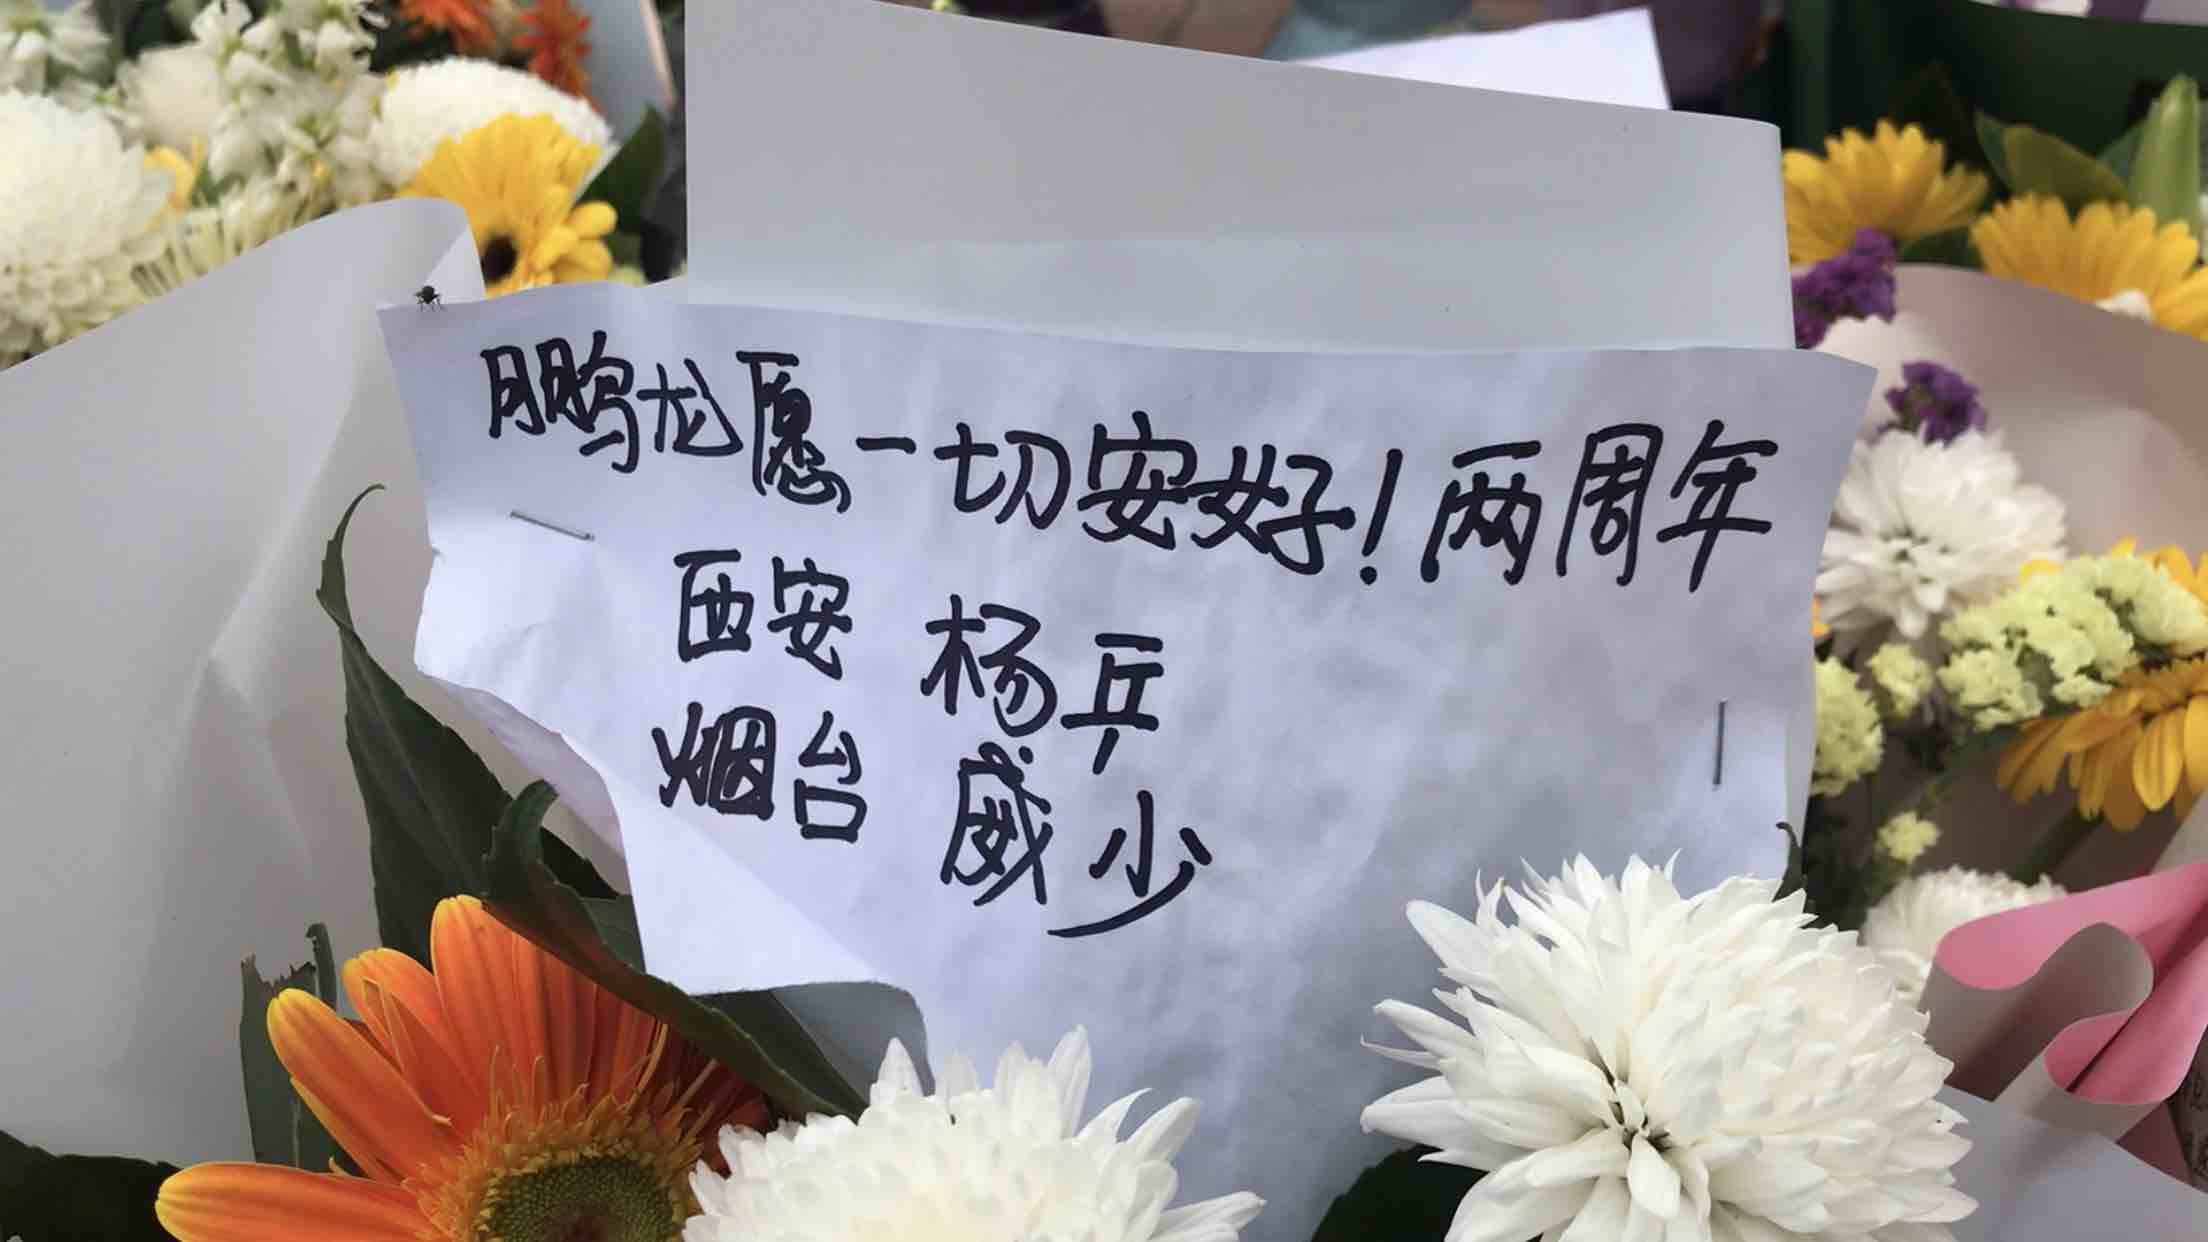 鹏龙愿一切安好！两周年
西安 杨乒
烟台 威少